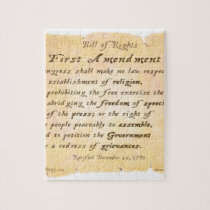 Bill of Rights
First Amendment
ngress shall make no law respec
establishment of religion,
prohibiting the free exercise the
abridging the freedom of speec
of the press; the right of
people peaceably to assemble,
d to petition the Government
a redress of grievances.
Ratified December 15, 1791